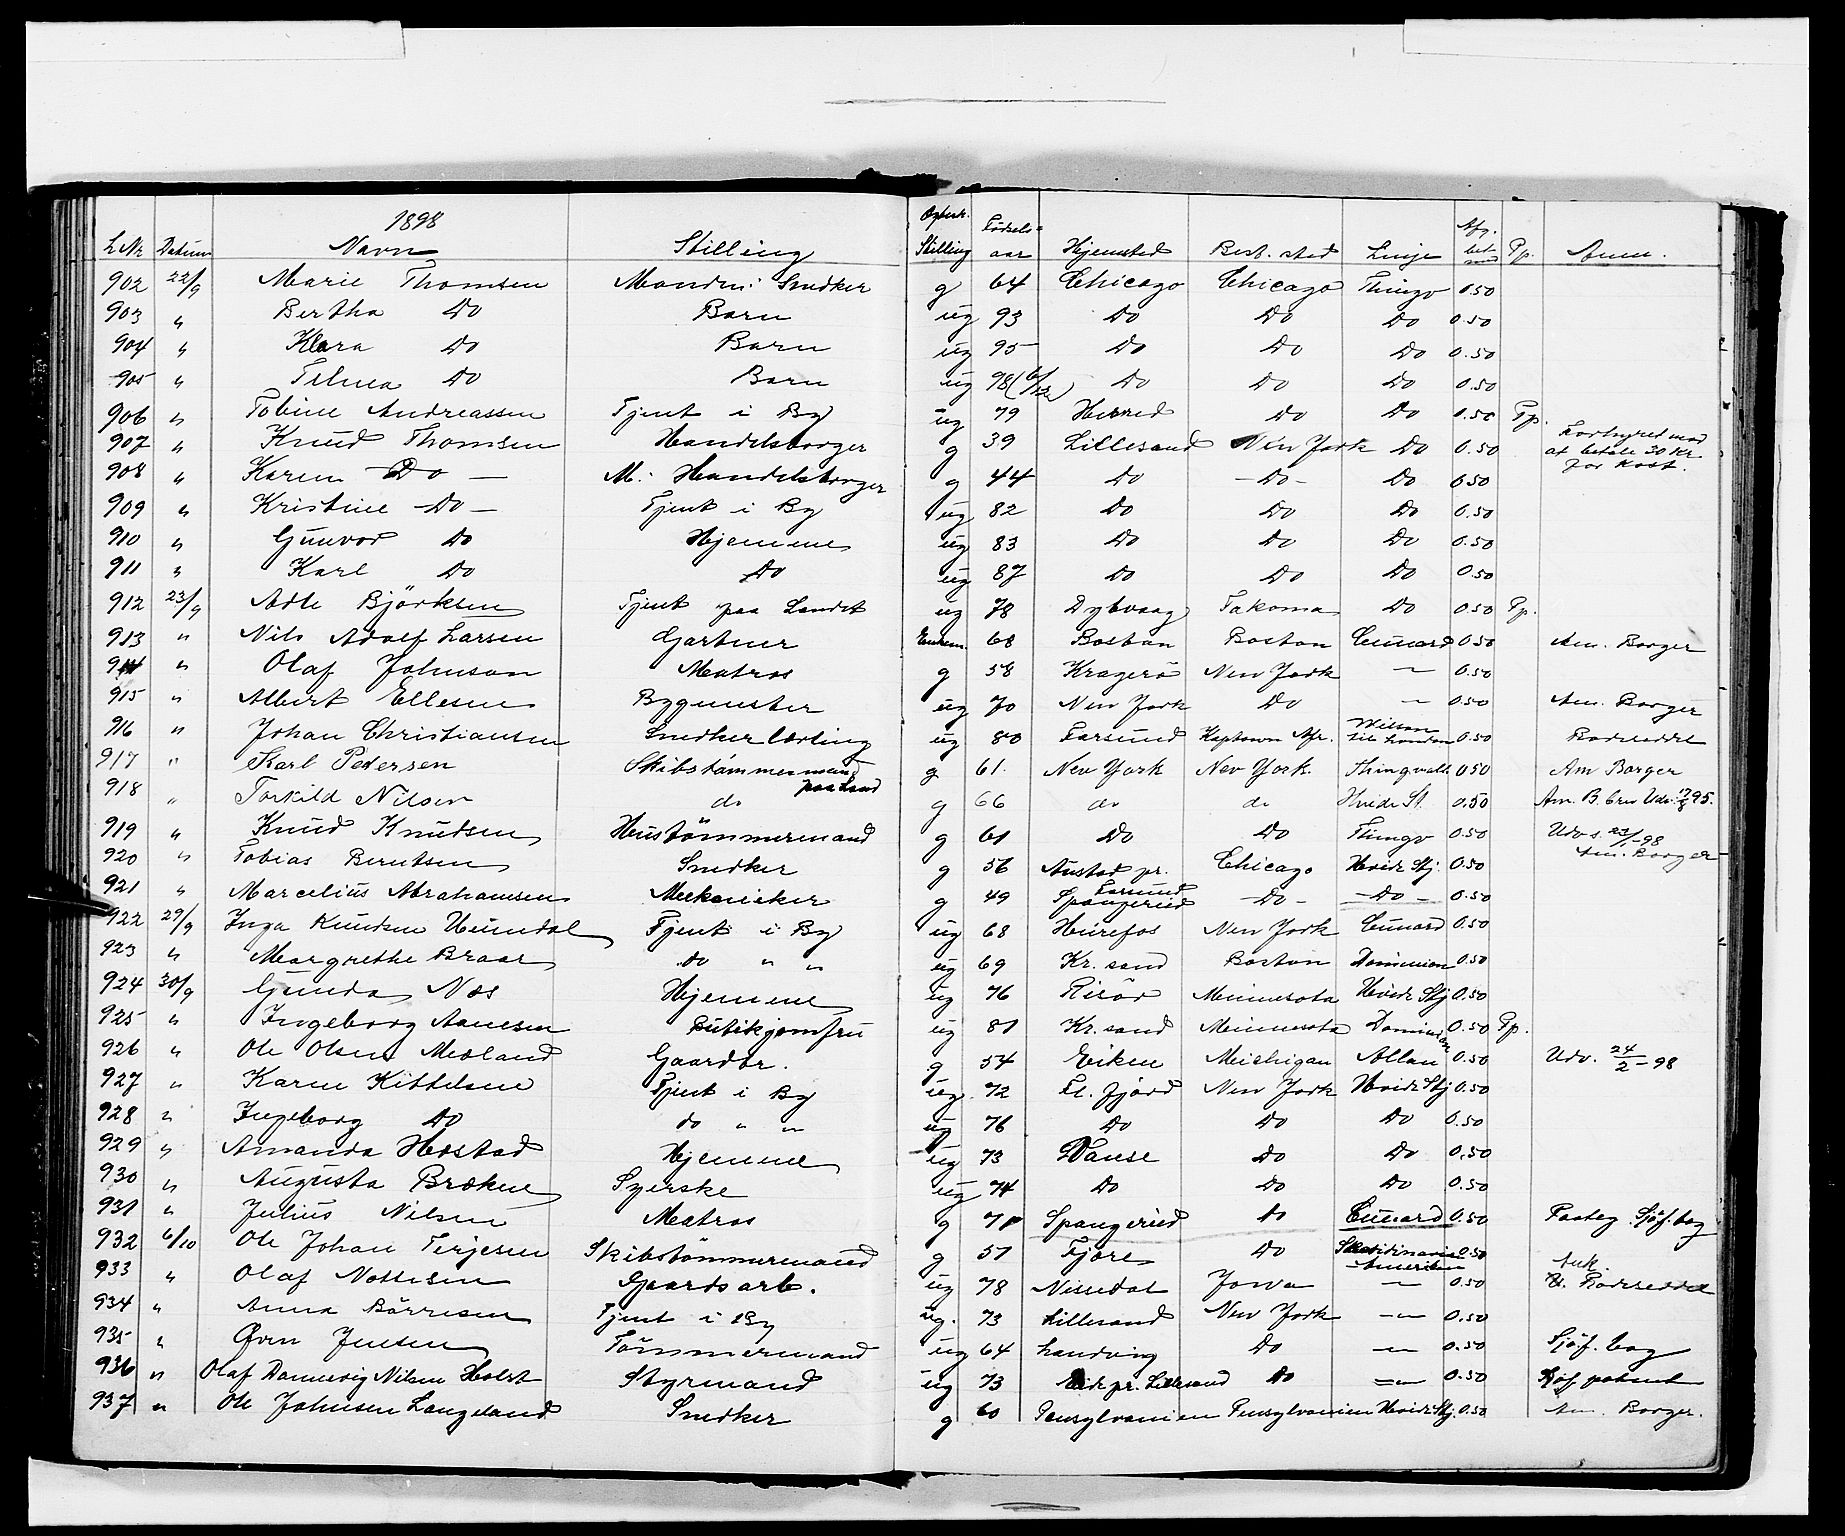 1898
L Nr Datum Navn Stilling Stilling Fødsels-aar Hjemsted Best. sted Linje Afg. Pp. Anm.
902 22/9 Marie Thomsen Mandn: Snedker g 64 Chicago Chicago Thingv 0.50
903 " Bertha Do Barn ug 93 Do Do Do 0.50
904 " Klara Do Barn ug 95 Do Do Do 0.50
905 " Do Barn ug 98 Do Do Do 0.50
906 " Tobine Andreassen Tjent i By ug 79 Herred Do Do 0.50 Pp.
907 " Knud Thomsen Handelsborger g 39 Lillesand New York Do 0.50 Forhyret mod at betale 30 Kr for Kost.
908 " Karen Do — M: Handelsborger g 44 Do —Do— Do 0.50
909 " Kristine —Do— Tjent i By ug 82 Do Do Do 0.50
910 " Gunvor Do Hjemme ug 83 Do Do Do 0.50
911 " Karl Do Do ug 87 Do Do Do 0.50
912 23/9 Björksen Tjent paa Landet ug 78 Dybvaag Takoma Do 0.50 Pp.
913 " Nils Adolf Larsen Gartner Enkem. 68 Boston Boston Cunard 0.50 Am. Borger
914 " Olaf Johnson Matros g 58 Kragerö New York — 0.50
915 " Albert Ellesen Bygmester ug 70 New York Do — 0.50 Am. Borger
916 " Johan Christiansen Snedkerlærling ug 80 Farsund Kaptown Afr. Wilson til London 0.50 Rodeseddel
917 " Karl Pedersen Skibstømmermand paa Land g 61. New York New York. Thingvalla 0.50 Am Borger
918 " Torkild Nilsen do g 66 do do Hvide St. 0.50 Am. B. brev Udv. 95.
919 " Knud Knudsen Hustömmermand g 61 Do Do Thingv 0.50 Udv s. 98 Am. Borger
920 " Tobias Berntsen Snedker g 56 Austad pr. Farsund Chicago Hvide Stj. 0.50
921 " Marcelius Abrahamsen Mekaniker g 49 Spangereid —Do— —Do— 0.50
922 29/9 Inga Knudsen Tjent i By ug 68 New York Cunard 0.50
923 " Margrethe Braar do " " ug 69 Kr. sand Boston Dominion 0.50
924 30/9 Gunda Næs Hjemme ug 76 Risör Minnesota Hvide Stj 0.50
925 " Ingeborg Aanesen Butikjomfru ug 81 Kr. sand Minnesota Dominion 0.50 Pp.
926 " Ole Olsen Mæland Gaardbr. g 54 Eiken Michigan Allan 0.50 Udv. 24/2 - 98
927 " Karen Kittelsen Tjent i By ug. 72 Fl. fjord New York Hvide Stj 0.50
928 " Ingeborg Do do " " ug 76 Do Do Do 0.50
929 " Amanda Hostad Hjemme ug 73 Vanse Do Do 0.50
930 " Augusta Brækne Syerske ug 74 Do Do Do 0.50
931 " Julius Nilsen Matros g 71 Spangereid do Cunard 0.50 Foreleg. Sjöf. bog
932 6/10 Ole Johan Terjesen Skibstömmermand g 51 Fjære Do Skandinavien Amerika 0.50
933 " Olaf Nottesen Gaardsarb. ug 78 Nissedal Jowa — 0.50 Ank. Rodeseddel
934 " Anna Börresen Tjent i By ug. 73 Lillesand New York —"— 0.50
935 " Øven Jensen Tömmermand ug 64 Landvig Do —"— 0.50 Sjöf. bog
936 " Olaf Dannevig Nilsen Holst Styrmand ug 73 Eide pr. Lillesand Do —"— 0.50 Sjöf. patent
937 " Ole Johnsen Langeland Snedker g 60 Pensylvanien Pensylvanien Hvide Stj 0.50 Am. Borger.